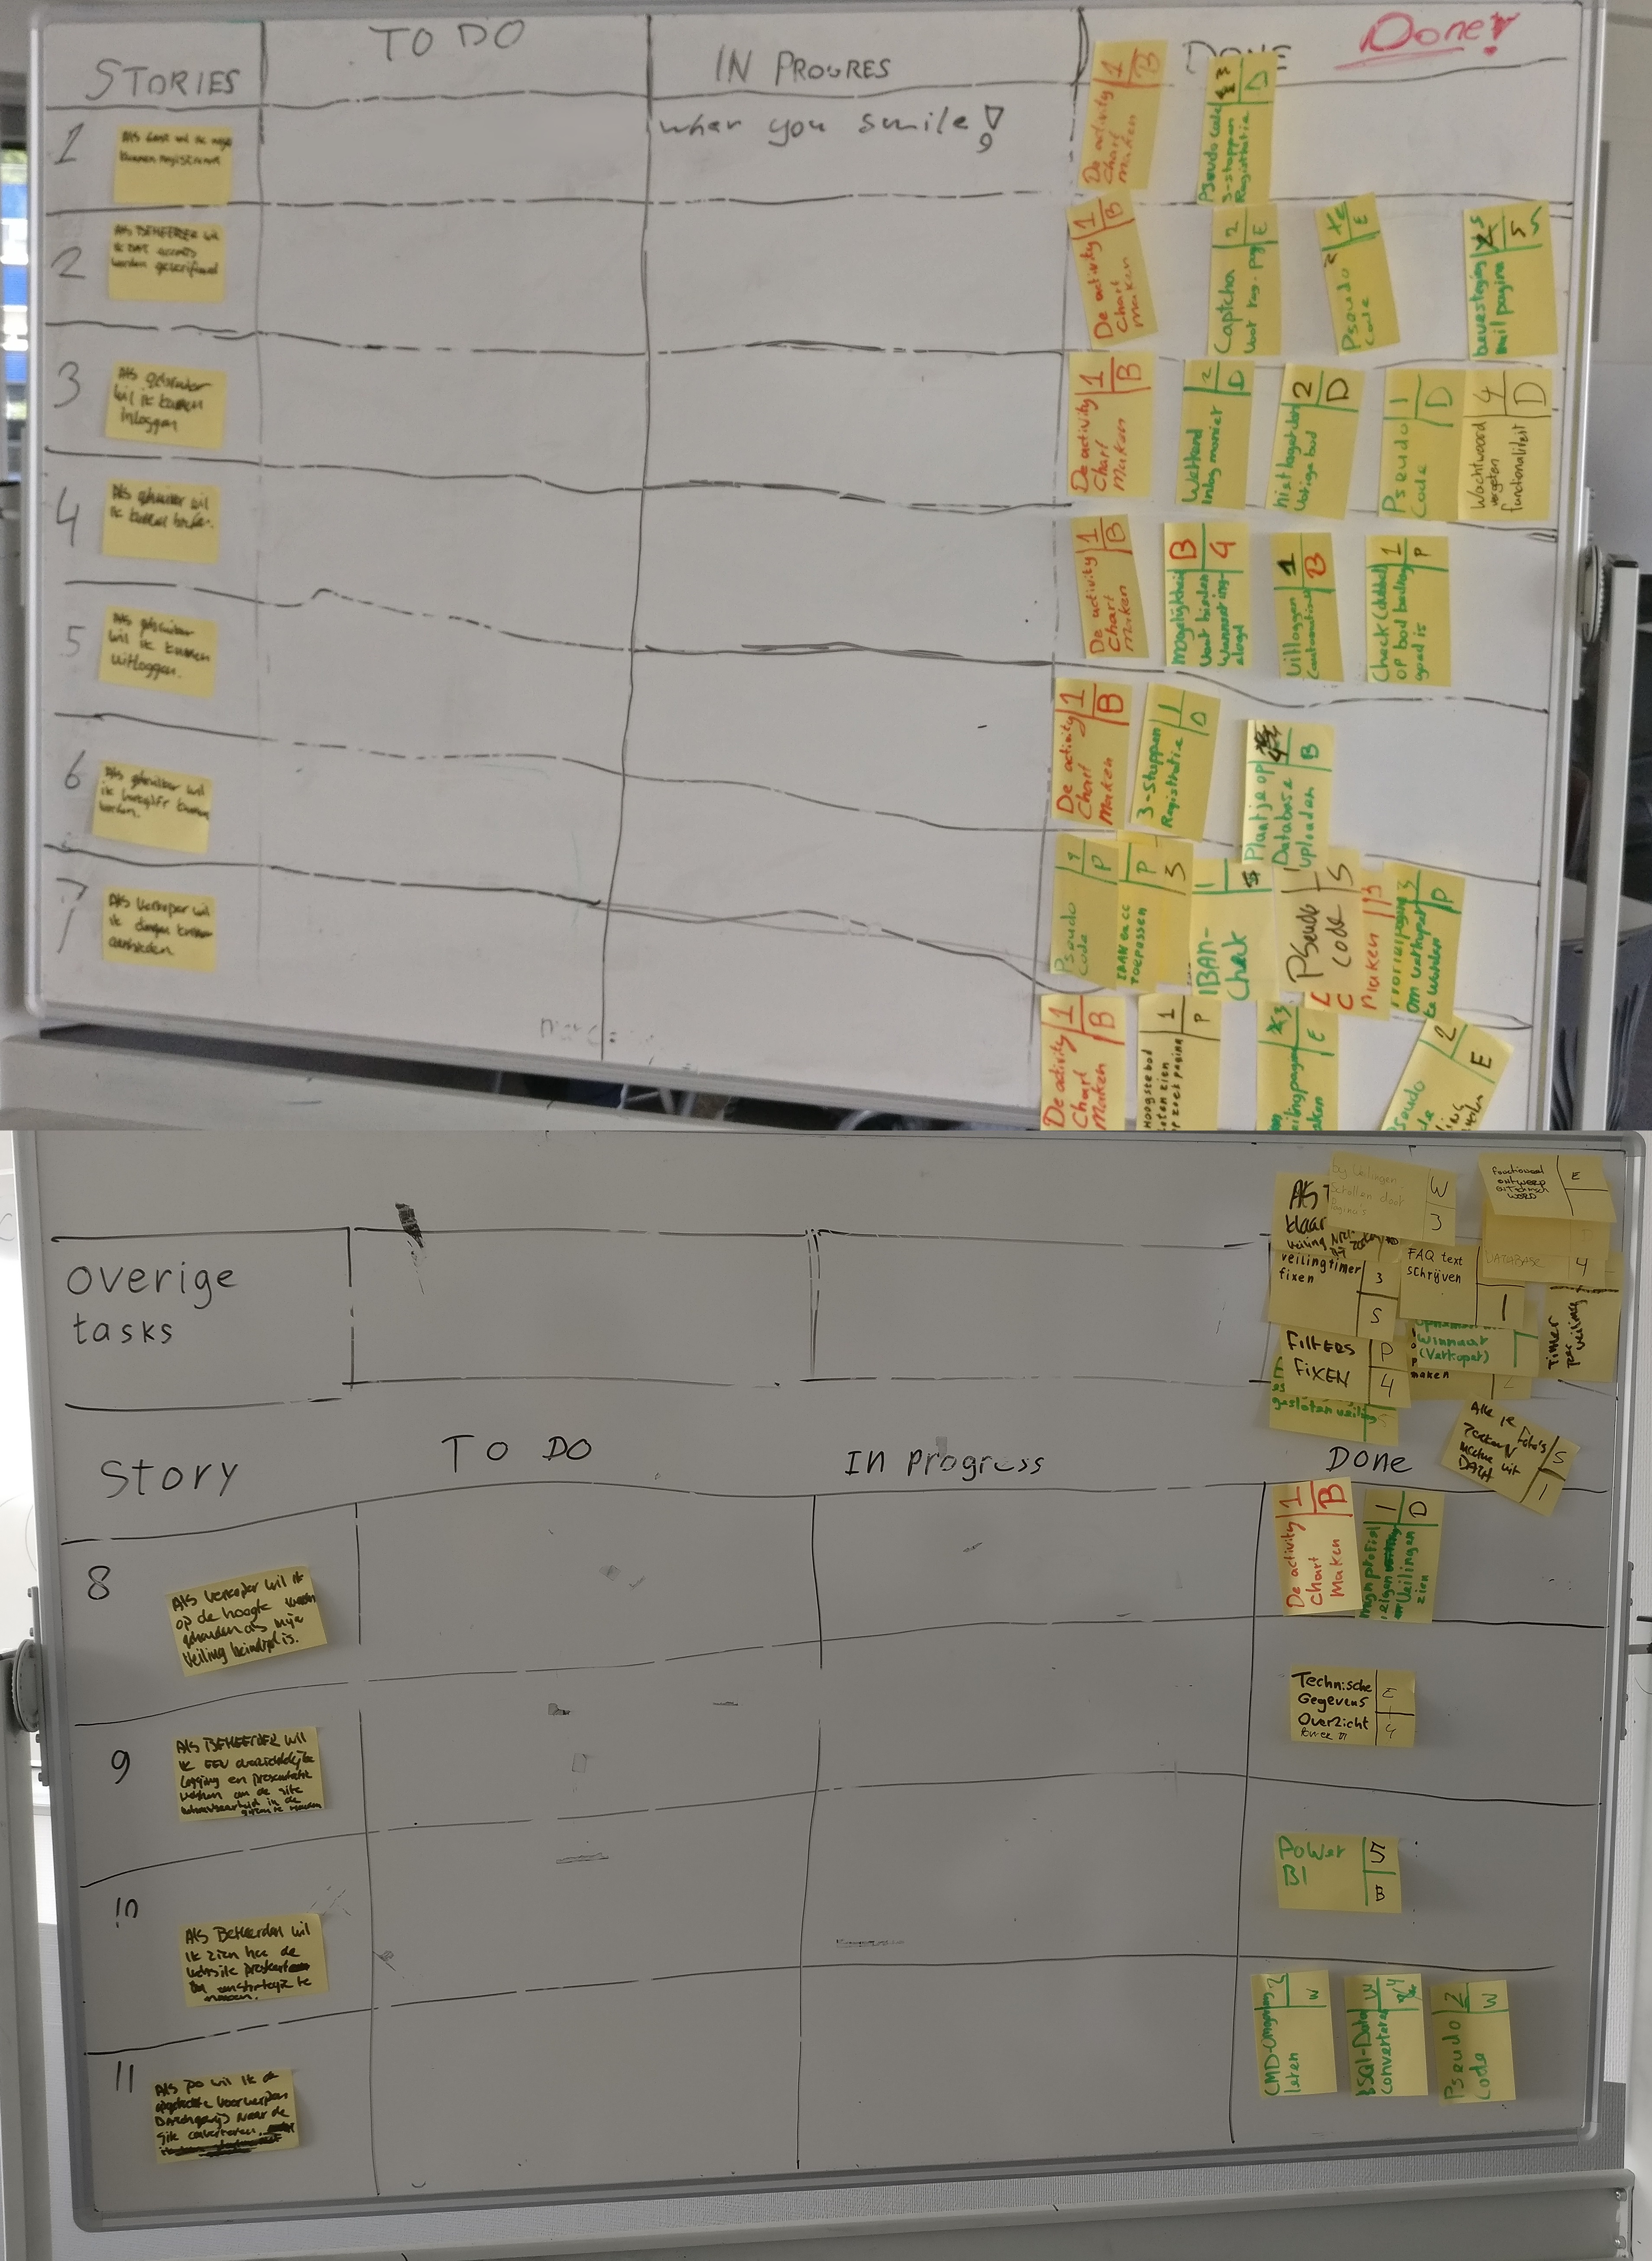 STORIES
TO DO
IN PROGRES
DONE
Done!
when you smile!
1
Als Gast wil ik mij
kunnen registreren
De activity
Chart
Maken
1
B
Pseudo code
3-stappen
Registratie
3
D
2
Als BEHEERDER wil
ik dat
worden geverifieerd
De activity
Chart
Maken
1
B
Captcha
voor reg. pag
2
E
Pseudo
code
E
bevestiging
mail pagina
5
3
Als gebruiker
wil ik kunnen
inloggen
De activity
Chart
Maken
1
B
Werkend
inlog manier
2
D
niet lager dan
vorige bod
2
D
Pseudo
Code
1
D
Wachtwoord
vergeten
functionaliteit
4
D
4
Als gebruiker wil
ik kunnen bieden.
De activity
Chart
Maken
1
B
mogelijkheid
voor bieden
wanneer ing-
elogd
B
4
Uitloggen
(automatisch)
1
B
Check (dubbel)
op bod bedrag
goed is
1
P
5
Als gebruiker
wil ik kunnen
uitloggen.
De activity
Chart
Maken
1
B
3-Stappen
Registratie
1
D
Plaatje op
Database
uploaden
4
B
6
Als gebruiker wil
ik verkoper kunnen
worden.
Pseudo
code
P
IBAN en cc
toepassen
P
3
IBAN-
Check
1
PSeudo
Code
1
S
Maken
om verkoper
te worden
3
P
7
Als Verkoper wil
ik dingen kunnen
aanbieden
De activity
Chart
Maken
1
B
Hoogste bod
laten zien
op zoek pagina
1
P
veilingpagina
maken
3
E
Pseudo
2
E
overige
tasks
Als
klaar
bij Veilingen
Scrollen door
Pagina's
W
3
functioneel
ontwerp
en Technisch
WORD
E
veilingtimer
fixen
3
S
FAQ text
schrijven
1
DATABASE
4
Filters
FIXEN
P
4
gesloten veiling
Winnaar
(Verkoper)
maken
Timer
per
veiling
Alle je foto's
S
1
Story
TO DO
In progress
Done
8
Als verkoper wil ik
op de hoogte
gehouden als mijn
Veiling beindigd is.
De activity
Chart
Maken
1
B
mijn profiel
eigen
veilingen
zien
1
D
9
Als BEHEERDER wil
ik EEN overzichtelijke
logging en presentatie
hebben om de site
in de
Technische
Gegevens
Overzicht
E
4
10
Als Beheerder wil
ik zien hoe de
website presteert
om een strategie te
maken.
Power
BI
5
B
11
Als PO wil ik de
Voorwerpen
naar de
site converteren.
CMD-Omgeving
leren
2
W
SQL-Data
Converteren
W
4
Pseudo
Code
2
W